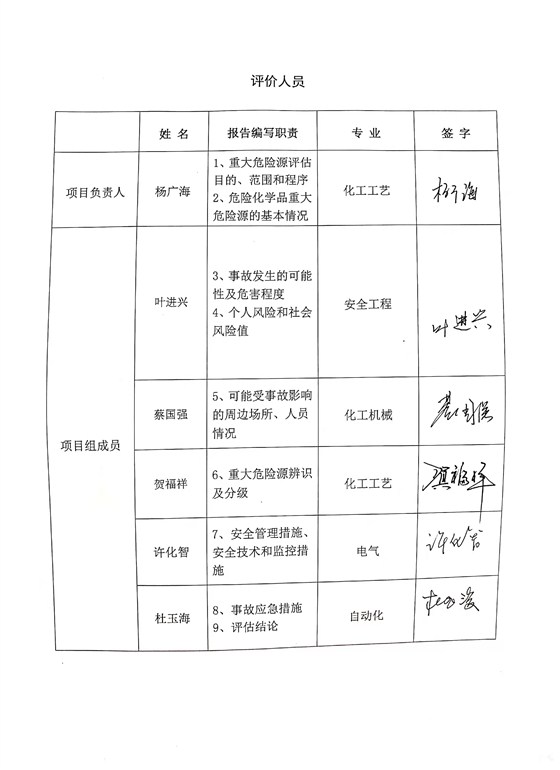 评价人员
姓 名 报告编写职责 专 业 签 字
项目负责人 杨广海 1、重大危险源评估
目的、范围和程序
2、危险化学品重大
危险源的基本情况
化工工艺
项目组成员
叶进兴 3、事故发生的可能
性及危害程度
4、个人风险和社会
风险值
安全工程 叶进兴
蔡国强 5、可能受事故影响
的周边场所、人员
情况
化工机械
贺福祥 6、重大危险源辨识
及分级
化工工艺
许化智 7、安全管理措施、
安全技术和监控措
施
电气
杜玉海 8、事故应急措施
9、评估结论
自动化